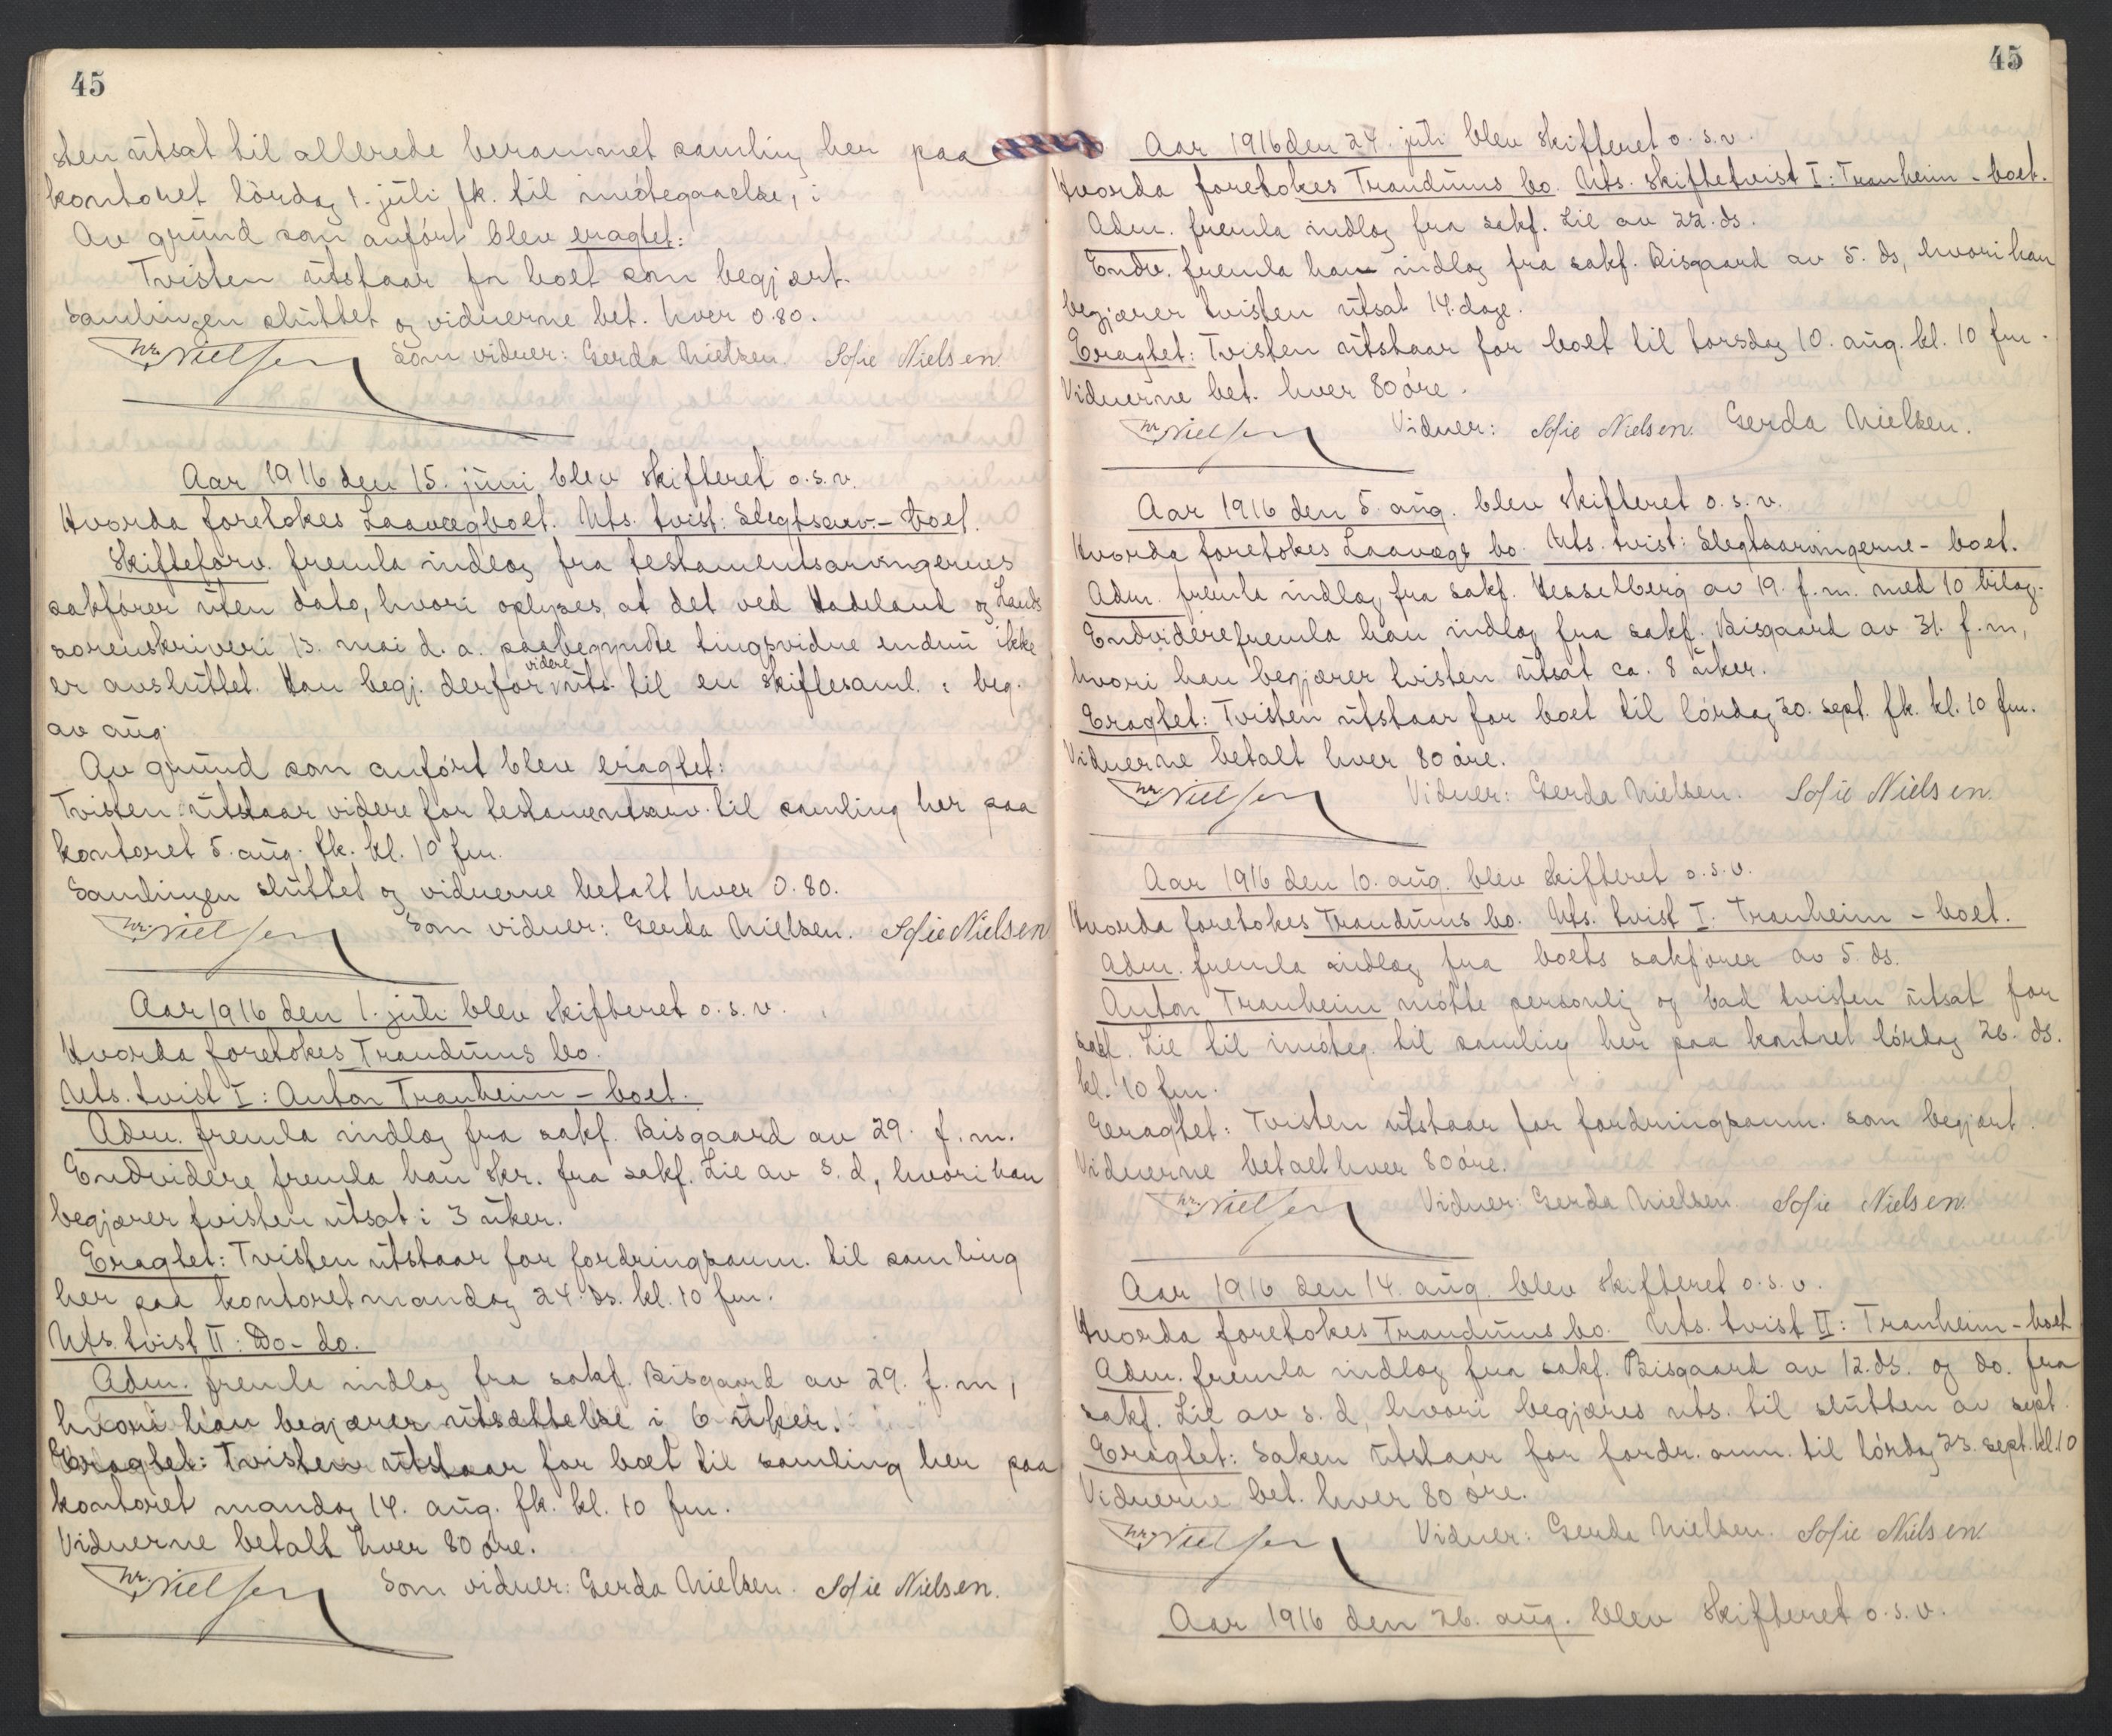 45
sten utsat til allerede berammet samling her paa
kontoret lördag 1. juli fk. til imötegaaelse, :
Av grund som anfört blev eragtet:
Tvisten utstaar for boet som begjært.
Samlingen sluttet og vidnerne bet. hver 0.80.
Nielsen Som vidner: Gerda Nielsen. Sofie Nielsen.
Aar 1916 den 15. juni blev skifteret o.s.v.
Hvorda foretokes Laavegboet. Uts. tvist: Slegtsarv.- boet.
Skifteforv. fremla indlæg fra testamentsarvingernes
sakförer uten dato, hvori oplyses, at det ved Hadeland og Lands
sorenskriveri 13. mai d. a. paabegyndte tingsvidne endnu ikke
er avsluttet. Han begj. derfor videre uts. til en skiftesaml. i beg.
av aug.
Av grund som anfört blev eragtet:
Tvisten utstaar videre for testamentsarv. til samling her paa
kontoret 5. aug. fk. kl. 10 fm.
Samlingen sluttet og vidnerne betalt hver 0.80.
Nielsen Som vidner: Gerda Nielsen. Sofie Nielsen
Aar 1916 den 1. juli blev skifteret o.s.v.
Hvorda foretokes Trandums bo.
Uts. tvist I: Anton Tranheim - boet.
Adm. fremla indlæg fra sakf. Bisgaard av 29. f.m.
Endvidere fremla han skr. fra sakf. Lie av s.d., hvori han
begjærer tvisten utsat i 3 uker.
Eragtet: Tvisten utstaar for fordringsanm. til samling
her paa kontoret mandag 24. ds. kl. 10 fm.
Uts. tvist II: Do - do.
Adm. fremla indlæg fra sakf. Bisgaard av 29. f.m,
hvori han begjærer utsættelse i 6 uker.
Eragtet: Tvisten utstaar for boet til samling her paa
kontoret mandag 14. aug. fk. kl. 10 fm.
Vidnerne betalt hver 80 öre.
Nielsen Som vidner: Gerda Nielsen. Sofie Nielsen.
45
Aar 1916 den 24. juli blev skifteret o.s.v.
Hvorda foretokes Trandums bo. Uts. skiftetvist I: Tranheim - boet.
Adm. fremla indlæg fra sakf. Lie av 22. ds.
Endv. fremla han indlæg fra sakf. Bisgaard av 5. ds, hvori han
begjærer tvisten utsat 14. dage.
Eragtet: Tvisten utstaar for boet til torsdag 10. aug. kl. 10 fm.
Vidnerne bet. hver 80 öre.
Nielsen Vidner: Sofie Nielsen. Gerda Nielsen.
Aar 1916 den 5. aug. blev skifteret o.s.v.
Hvorda foretokes Laavegs bo. Uts. tvist: Slegtsarvingerne - boet.
Adm. fremla indlæg fra sakf. Hesselberg av 19. f.m. med 10 bilag.
Endvidere fremla han indlæg fra sakf. Bisgaard av 31. f.m,
hvori han begjærer tvisten utsat ca. 8 uker.
Eragtet: Tvisten utstaar for boet til lördag 30. sept. fk. kl. 10 fm.
Vidnerne betalt hver 80 öre.
Nielsen Vidner: Gerda Nielsen. Sofie Nielsen.
Aar 1916 den 10. aug. blev skifteret o.s.v.
Hvorda foretokes Trandums bo. Uts. tvist I: Tranheim - boet.
Adm. fremla indlæg fra boets sakförer av 5. ds.
Anton Tranheim mötte personlig og bad tvisten utsat for
sakf. Lie til imöteg. til samling her paa kontoret lördag 26. ds.
kl. 10 fm.
Eragtet: Tvisten utstaar for fordringsanm. som begjært.
Vidnerne betalt hver 80 öre.
Nielsen Vidner: Gerda Nielsen. Sofie Nielsen.
Aar 1916 den 14. aug. blev skifteret o.s.v.
Hvorda foretokes Trandums bo. Uts. tvist II: Tranheim - boet
Adm. fremla indlæg fra sakf. Bisgaard av 12. ds. og do. fra
sakf. Lie av s.d, hvori begjæres uts. til slutten av sept.
Eragtet: Saken utstaar for fordr. anm. til lördag 23. sept. kl. 10
Vidnerne bet. hver 80 öre.
Nielsen Vidner: Gerda Nielsen. Sofie Nielsen
Aar 1916 den 26. aug. blev skifteret o.s.v.